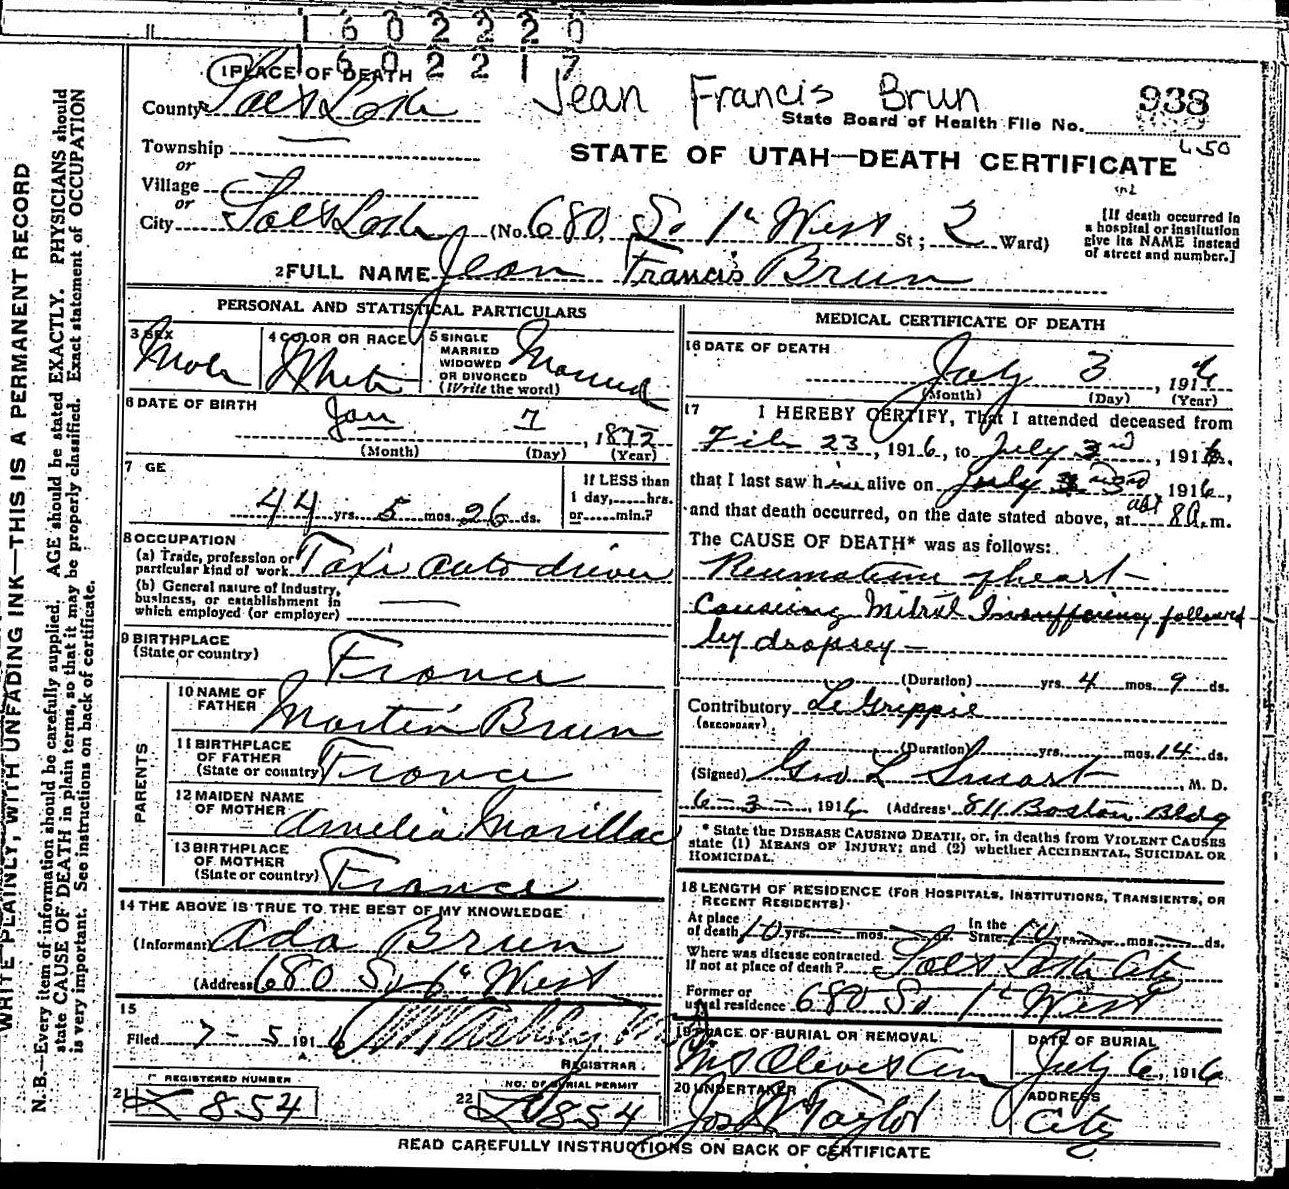 1 6 0 2 2 2 0
1 6 0 2 2 1 7
1 PLACE OF DEATH
Jean Francis Brun
938
County Salt Lake
State Board of Health File No.
Township
or
STATE OF UTAH—DEATH CERTIFICATE
Village
or
City Salt Lake (No. 680 So 1st West St; 2 Ward)
[If death occurred in
a hospital or institution
give its NAME instead
of street and number.]
2 FULL NAME Jean Francis Brun
PERSONAL AND STATISTICAL PARTICULARS
3 SEX Male
4 COLOR OR RACE White
5 SINGLE
MARRIED
WIDOWED
OR DIVORCED
(Write the word)
Married
6 DATE OF BIRTH
Jan 7, 1872
(Month) (Day) (Year)
7 GE
44 yrs. 5 mos. 26 ds.
If LESS than
1 day,......hrs.
or......min.?
8 OCCUPATION
(a) Trade, profession or
particular kind of work Taxi auto driver
(b) General nature of Industry,
business, or establishment in
which employed (or employer)
9 BIRTHPLACE
(State or country) France
PARENTS
10 NAME OF
FATHER Martin Brun
11 BIRTHPLACE
OF FATHER
(State or country) France
12 MAIDEN NAME
OF MOTHER Amelia Marillac
13 BIRTHPLACE
OF MOTHER
(State or country) France
14 THE ABOVE IS TRUE TO THE BEST OF MY KNOWLEDGE
(Informant) Ada Brun
(Address) 680 So 1st West
15
Filed 7-5 1916
REGISTRAR
21 REGISTERED NUMBER
854
22 NO. OF BURIAL PERMIT
854
MEDICAL CERTIFICATE OF DEATH
16 DATE OF DEATH
July 3, 1916
(Month) (Day) (Year)
17 I HEREBY CERTIFY, That I attended deceased from
Feb 23, 1916, to July 3rd, 1916,
that I last saw him alive on July 3rd 1916,
and that death occurred, on the date stated above, at abt 8 a.m.
The CAUSE OF DEATH* was as follows:
Reumatism of heart—
causing Mitral Insufficiency followed
by dropsey—
(Duration) yrs. 4 mos. 9 ds.
Contributory LeGrippie
(SECONDARY)
(Duration) yrs. mos. 14 ds.
(Signed) Geo L Smart, M. D.
6-3-, 1916 (Address) 811 Boston Bldg
* State the DISEASE CAUSING DEATH, or, in deaths from VIOLENT CAUSES
state (1) MEANS OF INJURY; and (2) whether ACCIDENTAL, SUICIDAL OR
HOMICIDAL.
18 LENGTH OF RESIDENCE (FOR HOSPITALS, INSTITUTIONS, TRANSIENTS, OR
RECENT RESIDENTS)
At place
of death 10 yrs. mos. ds. In the State 10 yrs. mos. ds.
Where was disease contracted
If not at place of death? Salt Lake City
Former or
usual residence 680 So 1st West
19 PLACE OF BURIAL OR REMOVAL
Mt Olivet Cem
DATE OF BURIAL
July 6, 1916
20 UNDERTAKER
Jos Wm Taylor
ADDRESS
City
READ CAREFULLY INSTRUCTIONS ON BACK OF CERTIFICATE
WRITE PLAINLY, WITH UNFADING INK—THIS IS A PERMANENT RECORD
N. B.—Every item of information should be carefully supplied. AGE should be stated EXACTLY. PHYSICIANS should
state CAUSE OF DEATH in plain terms, so that it may be properly classified. Exact statement of OCCUPATION
is very important. See instructions on back of certificate.